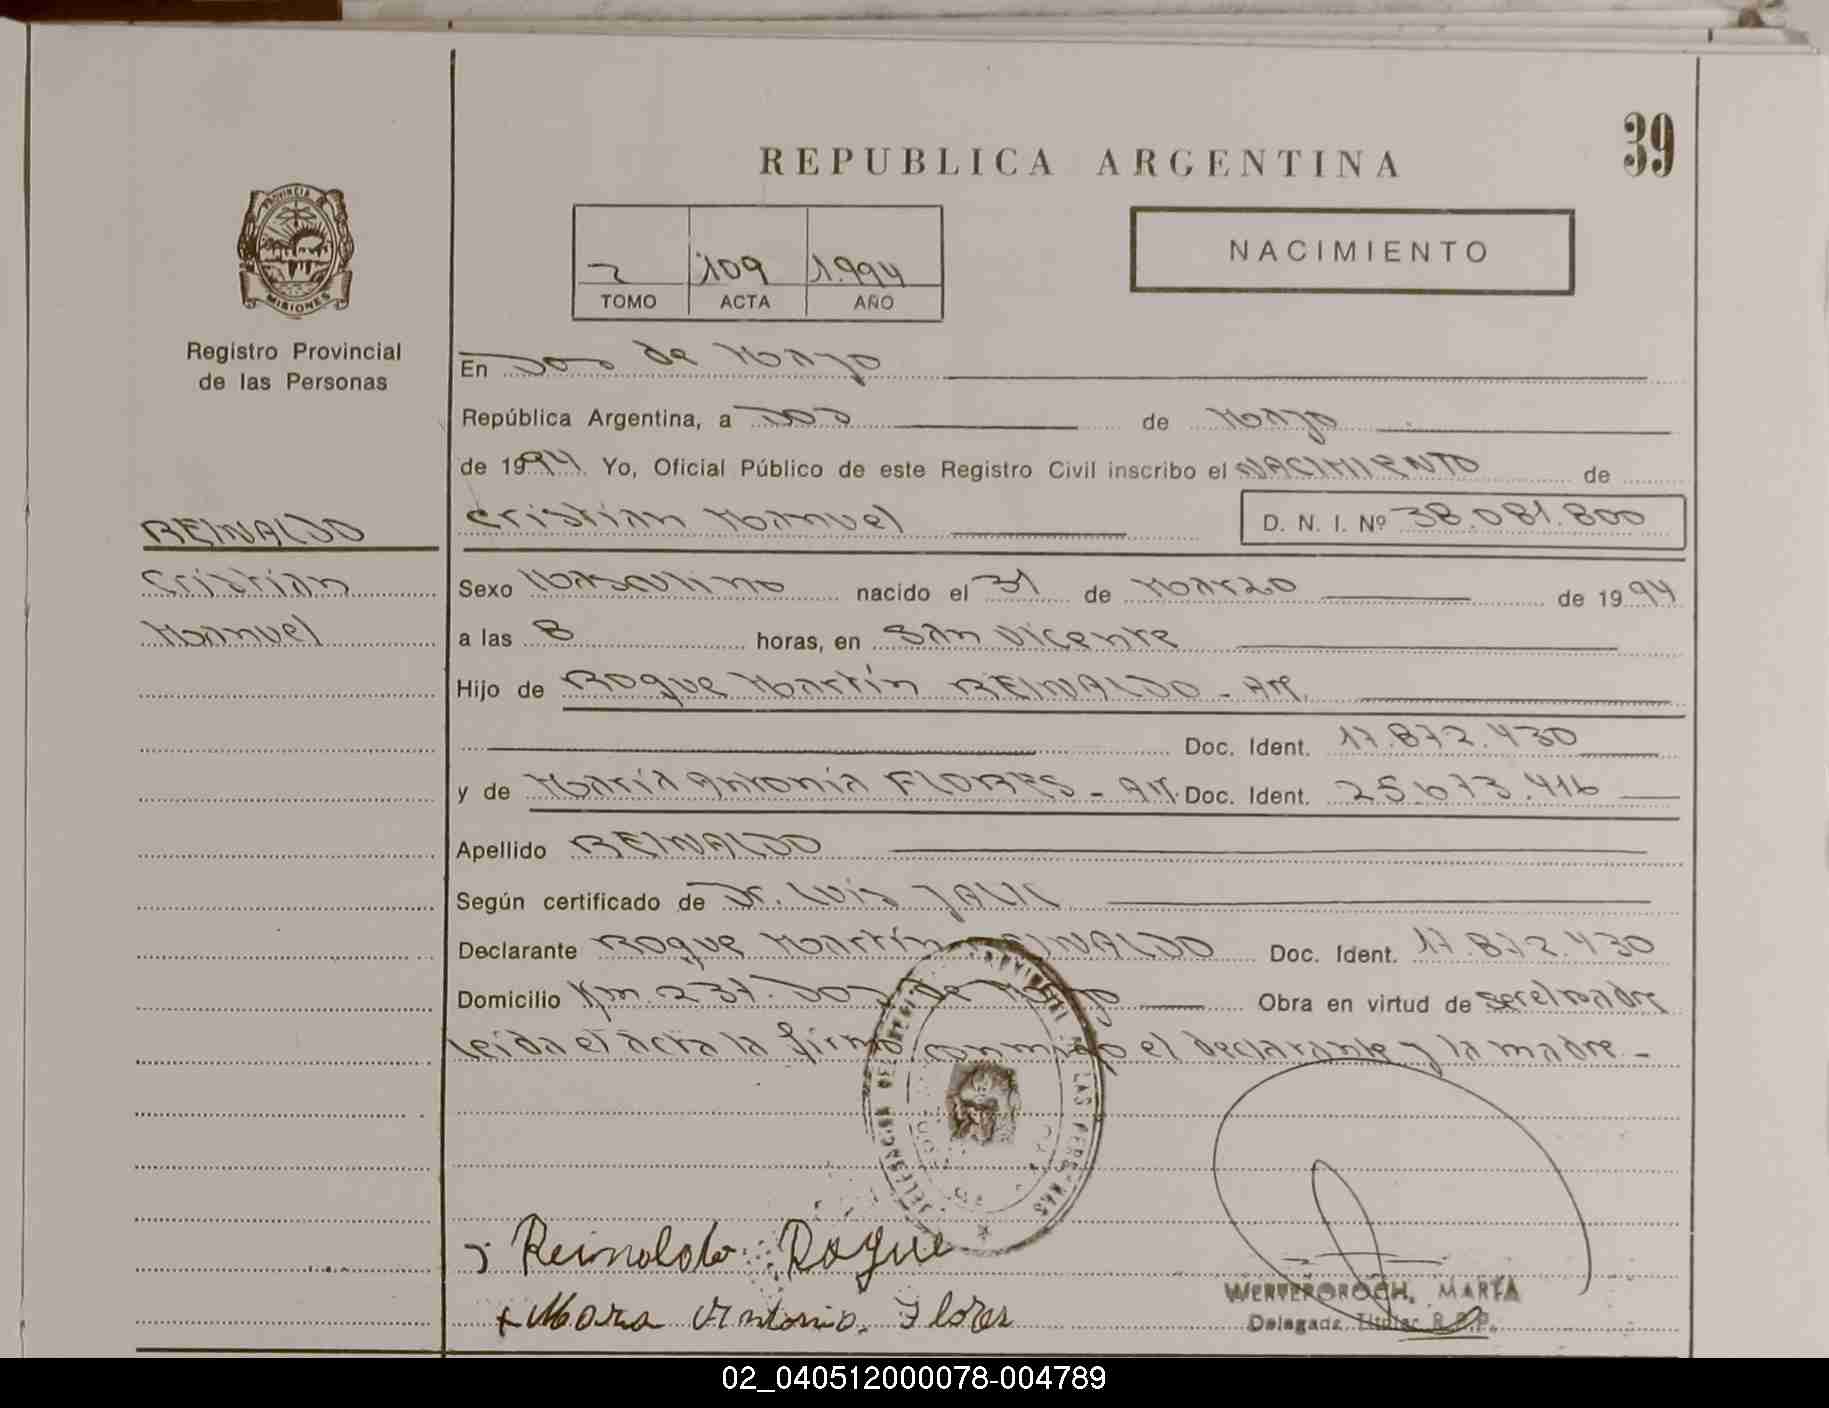 39
REPUBLICA ARGENTINA
PROVINCIA
MISIONES
NACIMIENTO
2 109 1.994
TOMO ACTA AÑO
Registro Provincial
de las Personas
En Dos de Mayo
República Argentina, a Dos de Mayo
de 1994 Yo, Oficial Público de este Registro Civil inscribo el NACIMIENTO de
REINALDO
Cristian Manuel D. N. I. Nº 38.081.800
Cristian
Manuel
Sexo Masculino nacido el 31 de Marzo de 1994
a las 8 horas, en San Vicente
Hijo de Roque Martín REINALDO - Arg.
Doc. Ident. 17.872.430
y de María Antonia FLORES - Arg. Doc. Ident. 25.673.416
Apellido REINALDO
Según certificado de Dr. Luis
Declarante Roque Martín REINALDO Doc. Ident. 17.872.430
Domicilio Km. 237. Dos de Mayo Obra en virtud de ser el padre
Leida el acta la firma conmigo el declarante y la madre -
DELEGACION PROVINCIAL DE LAS PERSONAS
Reinaldo Roque
x Maria Antonia Flores
WERTEROROCH, MARTA
Delegada Titular R.P.P.
02_040512000078-004789